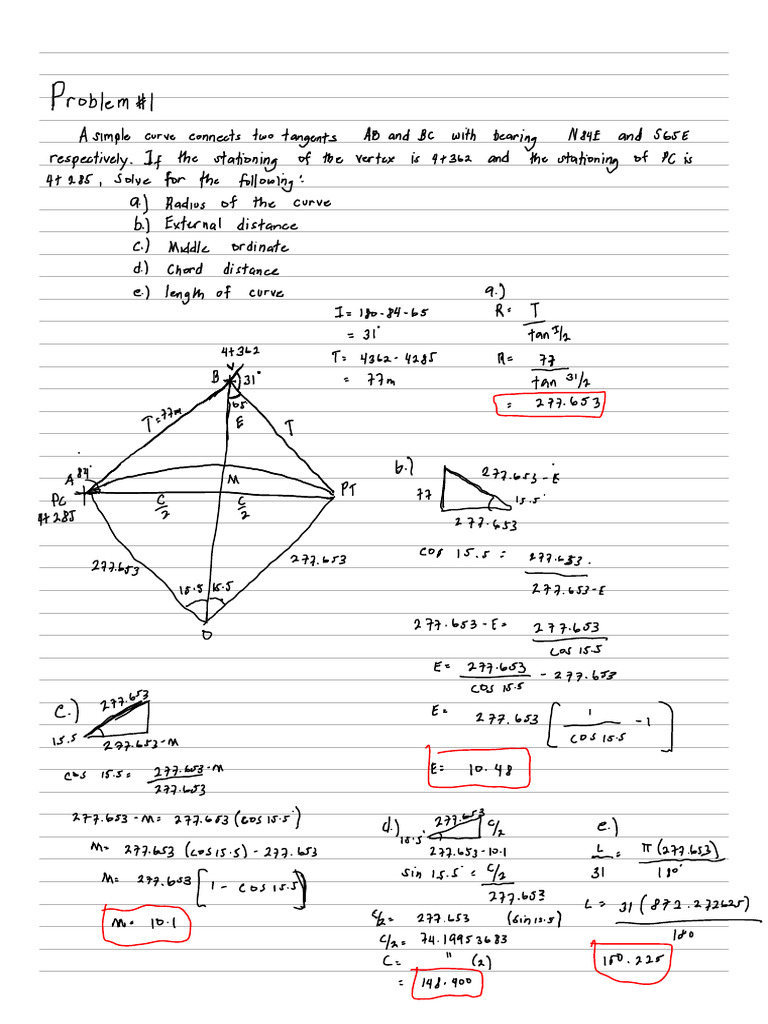 Problem #1
A simple curve connects two tangents AB and BC with bearing N84E and S65E
respectively. If the stationing of the vertex is 4+362 and the stationing of PC is
4+285, solve for the following:
a.) Radius of the curve
b.) External distance
c.) Middle ordinate
d.) Chord distance
e.) length of curve
I = 180-84-65
= 31°
T = 4362-4285
= 77m
a.)
R = T / tan I/2
R = 77 / tan 31/2
= 277.653
4+362
B 31°
65
E
T=77m
T
A 84°
PC
4+285
M
C/2
C/2
PT
277.653
277.653
15.5 15.5
O
b.)
277.653-E
77
15.5°
277.653
cos 15.5 = 277.653 / 277.653-E
277.653-E = 277.653 / cos 15.5
E = 277.653 / cos 15.5 - 277.653
E = 277.653 [ 1 / cos 15.5 - 1 ]
E = 10.48
c.)
277.653
15.5
277.653-M
cos 15.5 = 277.653-M / 277.653
277.653-M = 277.653 (cos 15.5)
M = 277.653 (cos 15.5) - 277.653
M = 277.653 [ 1 - cos 15.5 ]
M = 10.1
d.)
277.653
C/2
15.5°
277.653-10.1
sin 15.5 = C/2 / 277.653
C/2 = 277.653 (sin 15.5)
C/2 = 74.19953683
C = " (2)
= 148.400
e.)
L / 31 = π(277.653) / 180°
L = 31 (872.272625) / 180
150.225